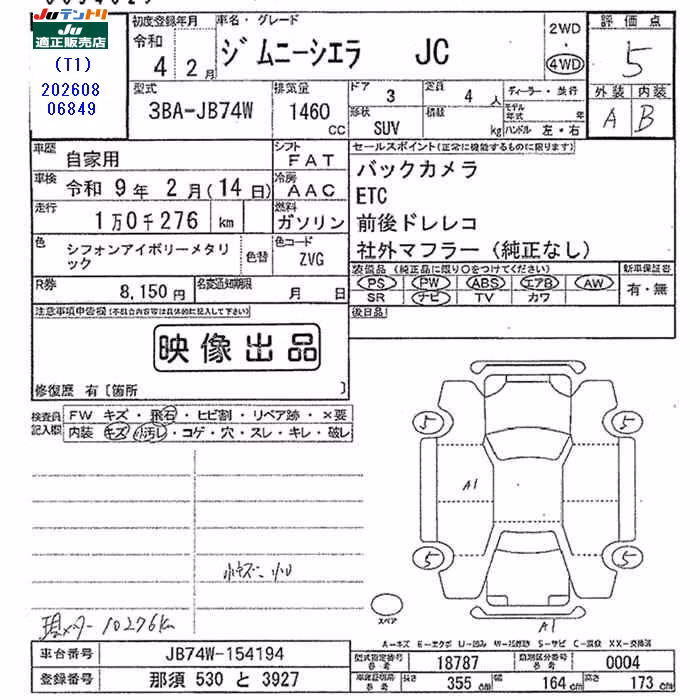 JUテントリ
JU
適正販売店
(T1)
202608
06849
初度登録年月
令和
4 2月
車名・グレード
ジムニーシエラ JC
2WD
・
4WD
評価点
5
外装 内装
A B
型式
3BA-JB74W
排気量
1460
CC
ドア
3
形状
SUV
定員
4 人
積載
kg
ディーラー・並行
モデル年式 年
ハンドル 左・右
車歴
自家用
シフト
FAT
車検
令和 9年 2月(14日)
冷房
AAC
走行
1万0千276 km
燃料
ガソリン
色
シフォンアイボリーメタリック
色替
色コード
ZVG
R券
8,150円
名変通知期限
月 日
セールスポイント(正常に機能するものに限ります)
バックカメラ
ETC
前後ドレレコ
社外マフラー(純正なし)
装備品(純正品に限り○をつけてください)
PS PW ABS エアB AW
SR ナビ TV カワ
新車保証書
有・無
後日品
注意事項申告欄(不具合内容等は具体的に記入して下さい)
映像出品
修復歴 有〔箇所 〕
検査員記入欄
FW キズ・飛石・ヒビ割・リペア跡・×要
内装 キズ・汚レ・コゲ・穴・スレ・キレ・破レ
5 5
A1
5 5
A1
スペア
小キズ、小U
現メーター10276km
A-キズ E-エクボ U-凹み W-波凹跡 S-サビ C-腐食 XX-交換済
車台番号
JB74W-154194
登録番号
那須 530 と 3927
型式指定番号
参考
18787
類別区分番号
参考
0004
車庫証明用
参考
長さ 355cm 幅 164cm 高さ 173cm